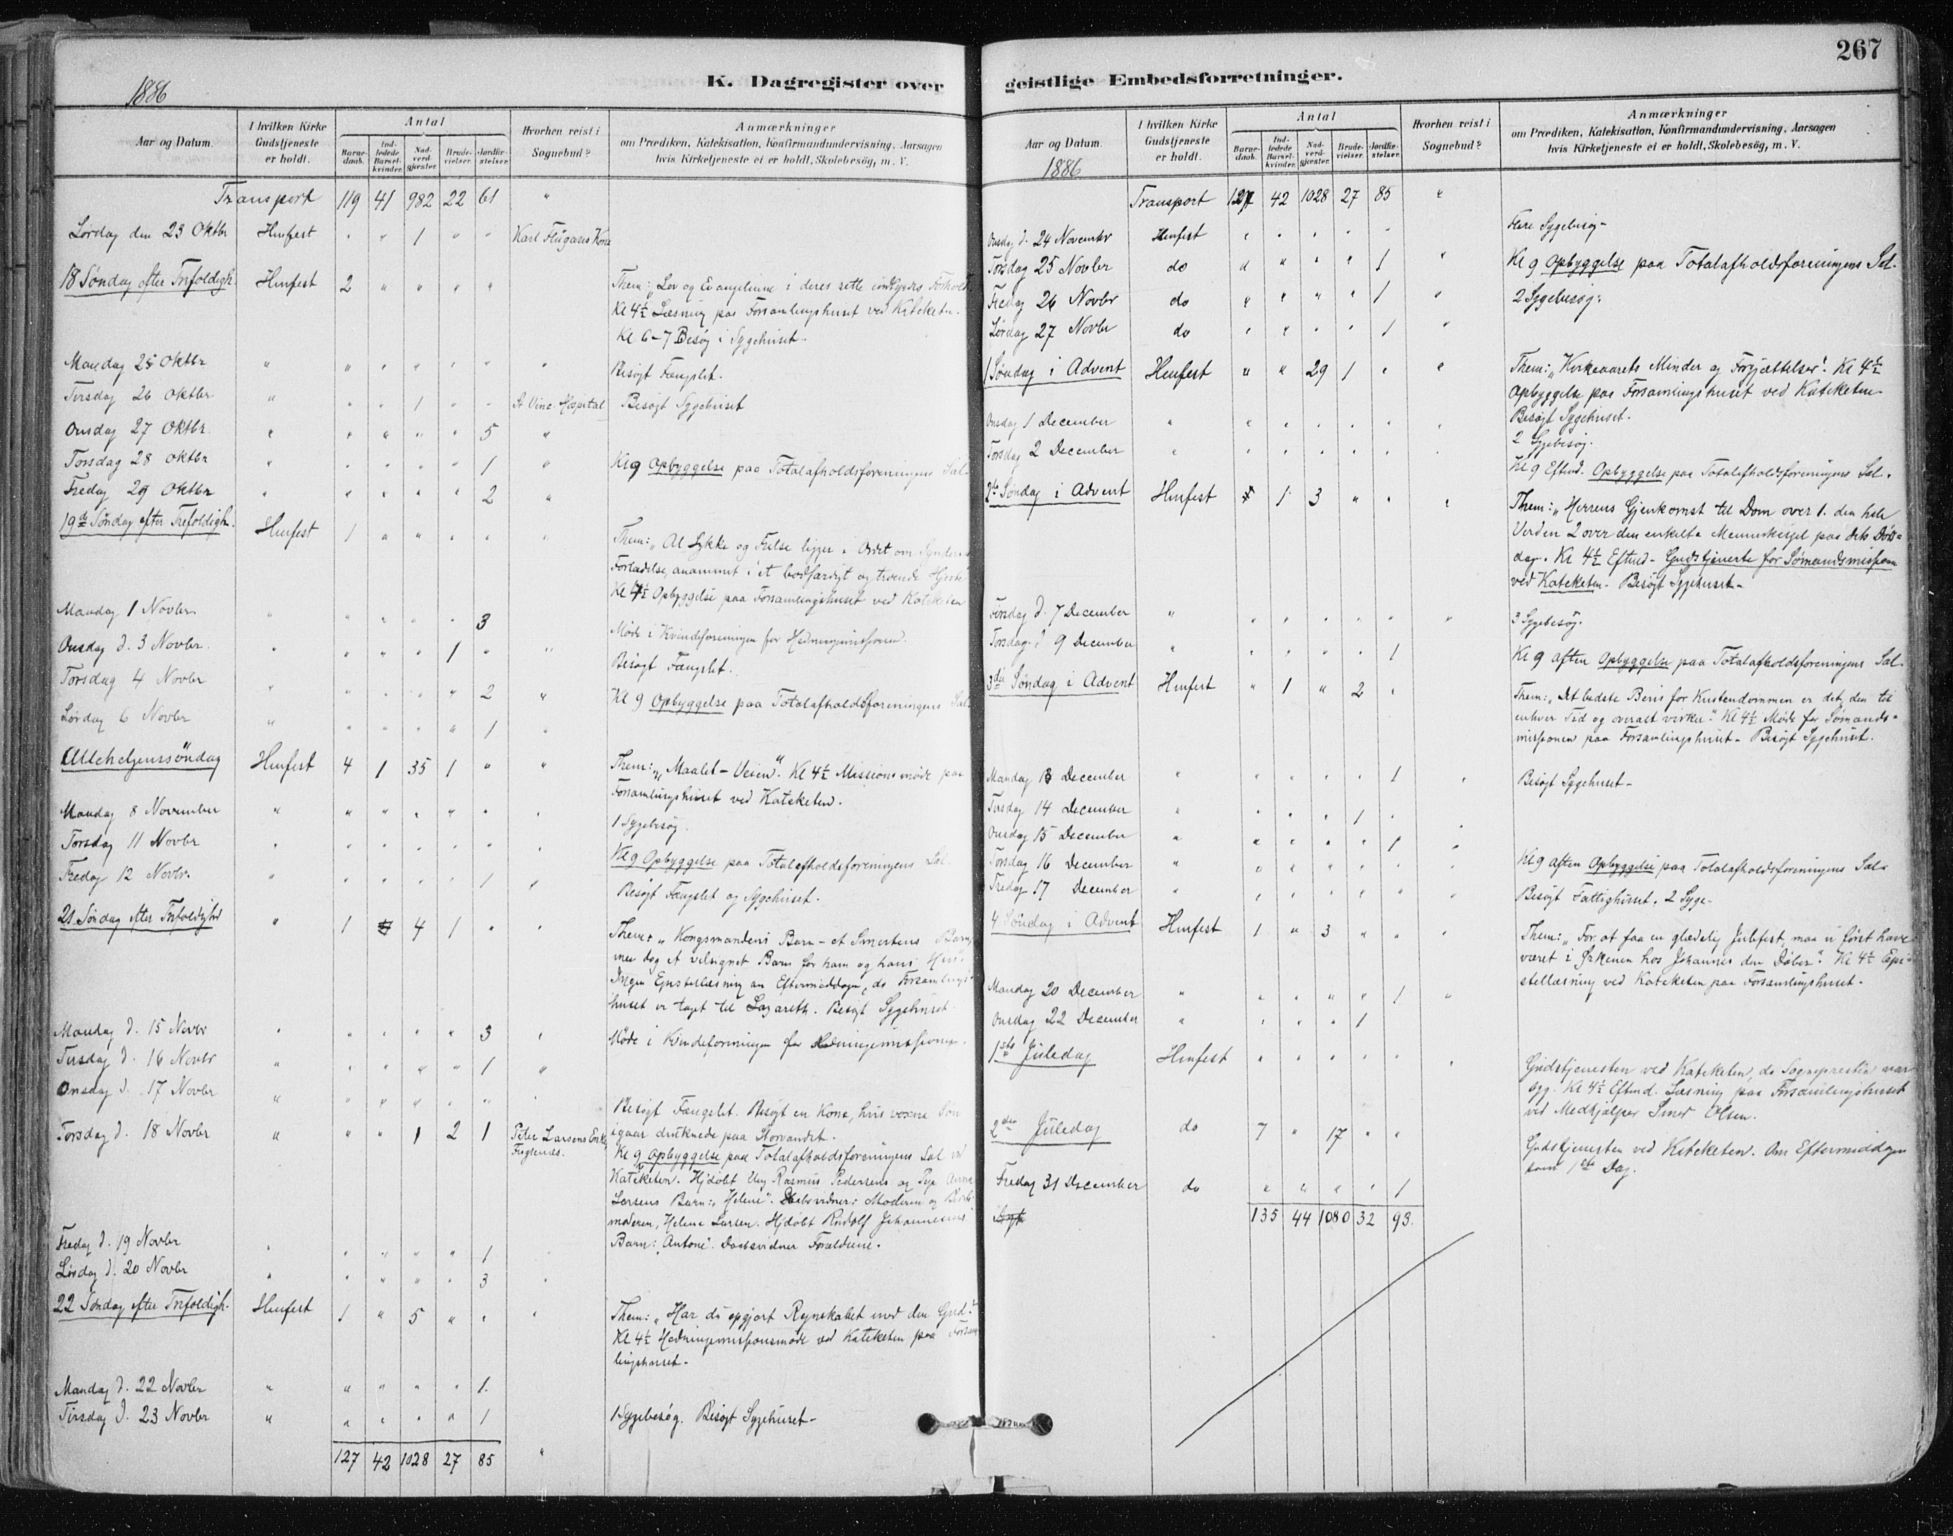 267
K. Dagregister over geistlige Embedsforretninger.
1886
Aar og Datum.
I hvilken Kirke Gudstjeneste er holdt.
Antal
Barnedaab.
Indledede Barselkvinder.
Nadverdgjester.
Brudevielser.
Jordfæstelser.
Hvorhen reist i Sognebud?
Anmærkninger
om Prædiken, Katekisation, Konfirmandundervisning, Aarsagen
hvis Kirketjeneste ei er holdt, Skolebesøg, m. V.
Transport 119 41 982 22 61 "
Lørdag den 23 Oktbr Hmfest " " 1 " " Karl Kone
18 Søndag efter Trefoldigh. Hmfest 2 " " " " Them: „Lov og Evangelium i deres rette
Kl 4½ Læsning paa Forsamlingshuset ved Kateketen.
Kl 6-7 Besøg i Sygehuset.
Mandag 25 Oktbr " " " " " " " Besøgt Fængslet.
Tirsdag 26 Oktbr " " " 1 " " St Vinc. Hospital Besøgt Sygehuset
Onsdag 27 Oktbr " " " " " 5 "
Torsdag 28 Oktbr " " " " " 1 " Kl 9 Opbyggelse paa Totalafholdsforeningens Sal.
Fredag 29 Oktbr " " " " " 2 "
19de Søndag efter Trefoldigh. Hmfest 1 " " " " " Them: „Al Lykke og Frelse ligger i Ordet om Syndernes
Forladelse, anammet i et bodfærdigt og troende Hjerte
Kl 4½ Opbyggelse paa Forsamlingshuset ved Kateketen
Mandag 1 Novbr. " " " " " 3 Møde i Kvindeforeningen for Hedningemissionen.
Onsdag d. 3 Novbr. " " " " 1 " " Besøgt Fængslet.
Torsdag 4 Novbr " " " " " 2 " Kl 9 Opbyggelse paa Totalafholdsforeningens Sal.
Lørdag 6 Novbr " " " " " 1 "
Allehelgenssøndag Hmfest 4 1 35 1 " " Them: „Maalet – Veien". Kl 4½ Missionsmøde paa
Forsamlingshuset ved Kateketen.
Mandag 8 November " " " " " " " 1 Sygebesøg.
Torsdag 11 Novbr " " " " " " " Kl 9 Opbyggelse paa Totalafholdsforeningens Sal.
Fredag 12 Novbr. " " " " " 1 " Besøgt Fængslet og Sygehuset.
21 Søndag efter Trefoldighed " 1 4 1 " " Thema „Kongsmandens Barn – et Smertens Barn,
men dog et velsignet Barn for ham og hans Hus".
Ingen Epistellæsning om Eftermiddagen, da Forsamlings-
huset er taget til Lazareth. Besøgt Sygehuset.
Mandag d. 15 Novbr " " " " " 3 " Møde i Kvindeforeningen for Hedningemissionen.
Tirsdag d. 16 Novbr " " " " " 1 "
Onsdag d. 17 Novbr " " " " " " " Besøgt Fængslet. Besøgt en Kone, hvis voxne Søn
igaar druknede paa Storvandet.
Torsdag d. 18 Novbr " " " 1 2 1 Peter Larsens Enke, Fuglenæs. Kl 9 Opbyggelse paa Totalafholdsforeningens Sal ved
Kateketen. Hjdøbt Ung Rasmus Pedersens og Pige Anna
Larsens Barn: „Helene". Daabsvidner: Moderen og
moderen, Helene Larsen. Hjdøbt Rudolf Johannesens
Barn: „Antone". Daabsvidner Forældrene.
Fredag d. 19 Novbr " " " " " 1 "
Lørdag d. 20 Novbr " " " " " 3 "
22 Søndag efter Trefoldigh. Hmfest 1 " 5 " " " Them: „Har du opgjort Regnskabet med din Gud?"
Kl 4½ Hedningemissionsmøde ved Kateketen paa Forsam-
lingshuset.
Mandag d. 22 Novbr " " " " " 1.
Tirsdag d. 23 Novbr " " " " " 1 1 Sygebesøg. Besøgt Sygehuset –
127 42 1028 27 85 "
Aar og Datum.
1886
I hvilken Kirke Gudstjeneste er holdt.
Antal
Barnedaab.
Indledede Barselkvinder.
Nadverdgjester.
Brudevielser.
Jordfæstelser.
Hvorhen reist i Sognebud?
Anmærkninger
om Prædiken, Katekisation, Konfirmandundervisning, Aarsagen
hvis Kirketjeneste ei er holdt, Skolebesøg, m. V.
Transport 127 42 1028 27 85 "
Onsdag d. 24 November Hmfest " " " " " Flere Sygebesøg –
Torsdag 25 Novbr do " " " " 1 " Kl 9 Opbyggelse paa Totalafholdsforeningens Sal.
Fredag 26 Novbr do " " " " 1 " 2 Sygebesøg.
Lørdag 27 Novbr do " " " " 1 "
1 Søndag i Advent Hmfest " " 29 1 " " Them: „Kirkeaarets Minder og Forjættelser". Kl 4½
Opbyggelse paa Forsamlingshuset ved Kateketen
Besøgt Sygehuset.
Onsdag 1 December " " " " " " " 2 Sygebesøg.
Torsdag 2 December " " " " " " " Kl 9 Eftmd. Opbyggelse paa Totalafholdsforeningens Sal.
2de Søndag i Advent Hmfest 1 3 " " " Them: „Herrens Gjenkomst til Dom over 1. den hele
Verden 2 over den enkelte Menneskesjel paa dets Døds-
dag. Kl 4½ Eftmd. Gudstjeneste for Sømandsmission
ved Kateketen. Besøgt Sygehuset –
Tirsdag d. 7 December " " " " " " " 3 Sygebesøg.
Torsdag d 9 December " " " " " 1 Kl 9 aften Opbyggelse paa Totalafholdsforeningens Sal.
3die Søndag i Advent Hmfest " 1 " 2 " Them: „Det bedste Bevis for Kristendommen er det, den til
enhver Tid og overalt virker". Kl 4½ Møde for Sømands-
missionen paa Forsamlingshuset – Besøgt Sygehuset.
Mandag 13 December " " " " " 1 " Besøgt Sygehuset –
Tirsdag 14 December " " " " 1 " "
Onsdag 15 December " " " " " 1 "
Torsdag 16 December " " " " " " " Kl 9 aften Opbyggelse paa Totalafholdsforeningens Sal.
Fredag 17 December " " " " " " " Besøgt Fattighuset. 2 Syge–
4 Søndag i Advent Hmfest 1 " 3 " " " Them: „For at faa en glædelig Julefest, maa vi først have
været i Ørkenen hos Johannes den Døber". Kl 4½ Epi-
stellæsning ved Kateketen paa Forsamlingshuset.
Mandag 20 December " " " " " 1 "
Onsdag 22 December " " " " 1
1ste Juledag Hmfest " " " " " " Gudstjenesten ved Kateketen, da Sognepresten var
syg. Kl 4½ Eftmd. Læsning paa Forsamlingshuset
ved Medhjælper Olsen.
2den Juledag do 7 " 17 " " Gudstjenesten ved Kateketen. Om Eftermiddagen
som 1ste Dag.
Fredag 31 December do " " " " 1
135 44 1080 32 93.